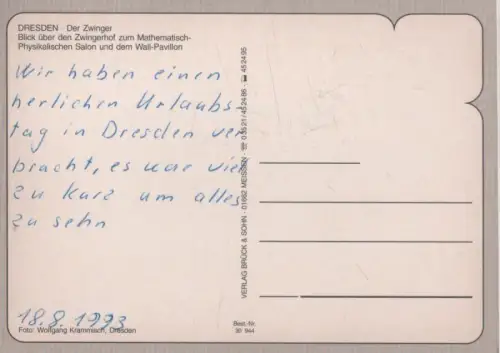 DRESDEN · Der Zwinger
Blick über den Zwingerhof zum Mathematisch-
Physikalischen Salon und dem Wall-Pavillon
Wir haben einen
herlichen Urlaubs-
tag in Dresden ver
bracht, es war viel
zu kurz um alles
zu sehn
18.8.1993
Foto: Wolfgang Krammisch, Dresden
VERLAG BRÜCK & SOHN · 01662 MEISSEN · ☎ 0 35 21 / 45 24 86 · 45 24 95
Best.-Nr.